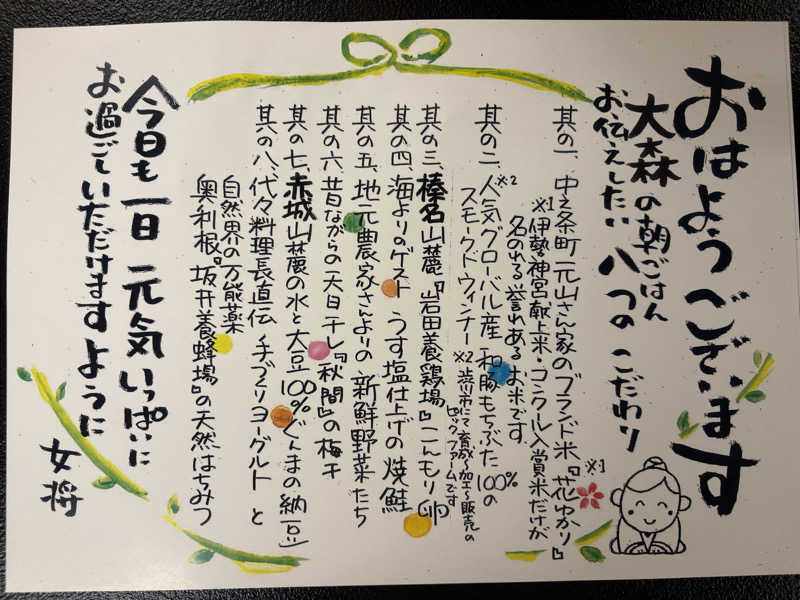 おはようございます
大森の朝ごはん
お伝えしたい八つのこだわり
其の一、中之条町元山さん家のブランド米『花ゆかり』※1
※1伊勢神宮献上米・コンクール入賞米だけが
名のれる誉れあるお米です
其の二、人気グローバル産 和豚もちぶた100%の
※2スモークドウィンナー
※2渋川市にて育成～加工～販売の
ファームです
其の三、榛名山麓『岩田養鶏場』こんもり卵
其の四、海よりのゲスト うす塩仕上げの焼鮭
其の五、地元農家さんよりの新鮮野菜たち
其の六、昔ながらの天日干し『秋間』の梅干
其の七、赤城山麓の水と大豆100%ぐんまの納豆
其の八、代々料理長直伝 手づくりヨーグルト と
自然界の万能薬
奥利根『坂井養蜂場』の天然はちみつ
今日も一日 元気いっぱいに
お過ごしいただけますように
女将